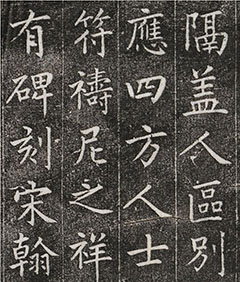 隔盖人區別
應四方人士
符禱尼之祥
有碑刻宋翰